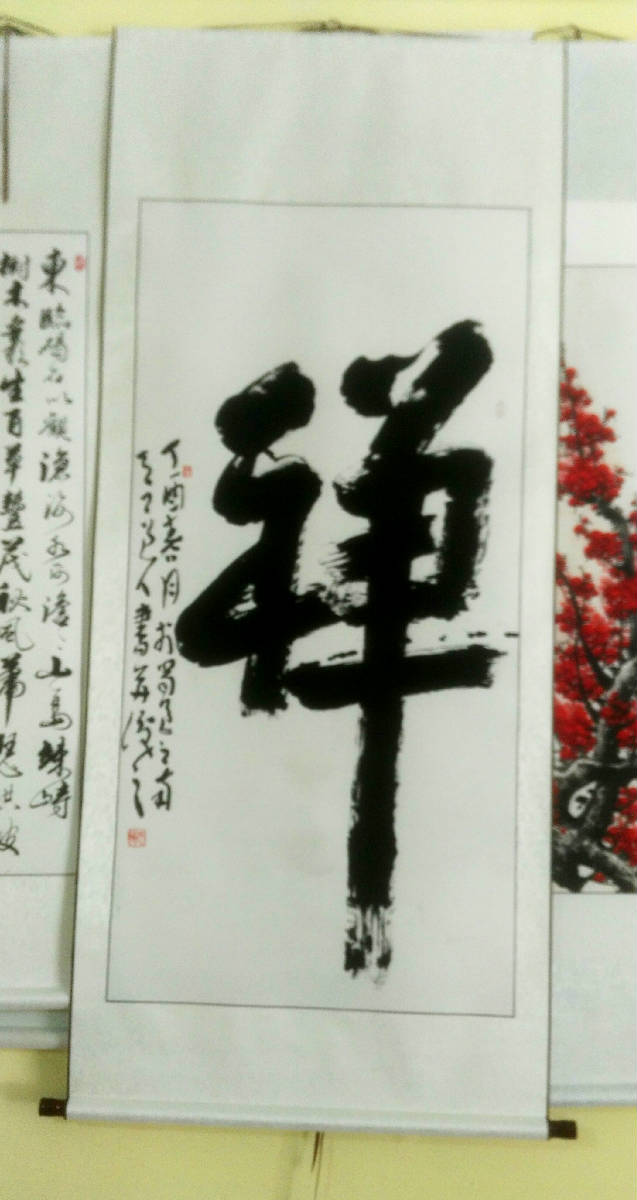 禅
丁酉春月於蜀
道人書
東臨碣石以觀滄海水何澹々山島竦峙
樹木叢生百草豐茂秋風蕭瑟洪波